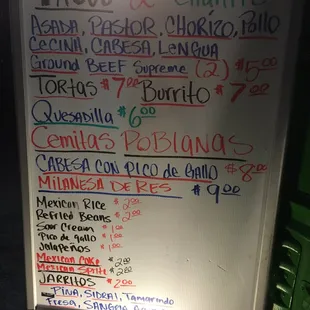 ASADA, PASTOR, CHORIZO, Pollo
CECINA, CABESA, LENGUA
Ground BEEF Supreme (2) $5.00
Tortas $7.00 Burrito $7.00
Quesadilla $6.00
Cemitas PoBlanas
CABESA CON PICO de GAllo $8.00
MILANESA DE RES $9.00
Mexican Rice $2.00
Refried Beans $2.00
Sour Cream $1.00
Pico de gallo $1.00
Jalapeños $1.00
Mexican Coke $2.00
Mexican Sprite $2.00
JARRITOS $2.00
PIÑA, SIDRAL, Tamarindo
Fresa, SANGRIA